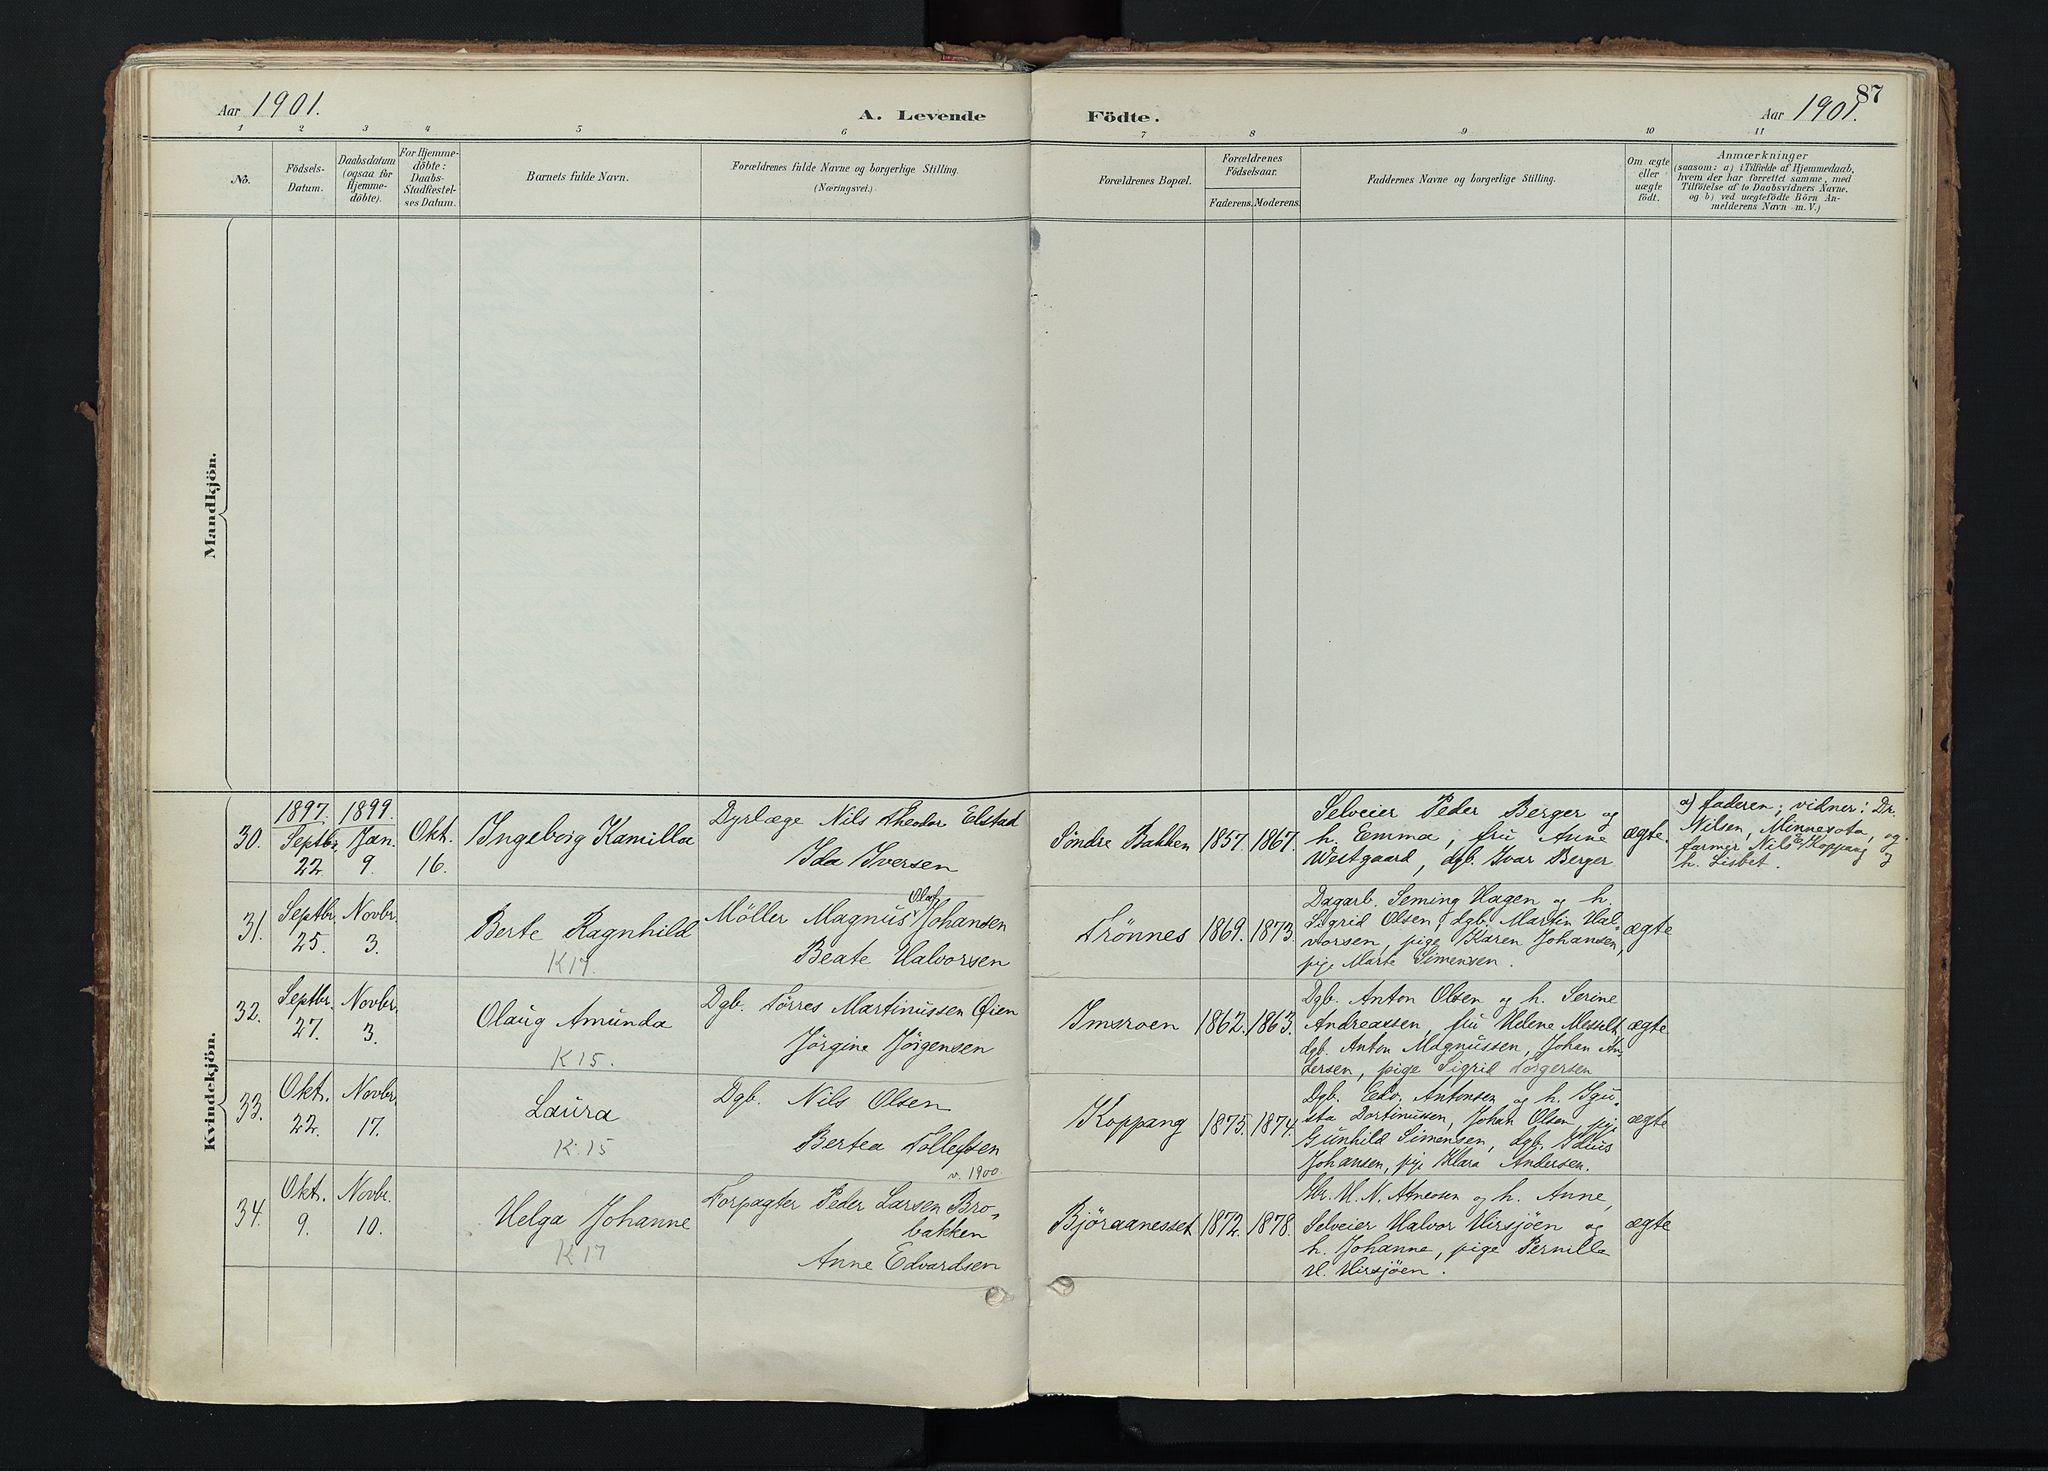 Aar 1901.
A. Levende
Födte.
Aar 1901.
87
1 2 3 4 5 6 7 8 9 10 11
No.
Födsels-
Datum.
Daabsdatum
(ogsaa for
Hjemme-
döbte).
For Hjemme-
döbte:
Daabs-
Stadfæstel-
ses Datum.
Barnets fulde Navn.
Forældrenes fulde Navne og borgerlige Stilling.
(Næringsvei.)
Forældrenes Bopæl.
Forældrenes
Födselsaar.
Faderens. Moderens.
Faddernes Navne og borgerlige Stilling.
Om ægte
eller
uægte
födt.
Anmærkninger
(saasom: a) i Tilfælde af Hjemmedaab,
hvem der har forrettet samme, med
Tilföielse af to Daabsvidners Navne,
og b) ved uægtefödte Börn An-
melderens Navn m. V.)
Mandkjön.
Kvindekjön.
30.
1897.
Septbr.
22.
1899.
Jan.
9.
Okt.
16.
Ingeborg Kamilla
Dyrlæge Nils Theodor Elstad
Ida Iversen
Søndre Bakken
1857.
1867.
Selveier Peder Berger og
h. Emma, fru Anne
Westgaard, dgb. Ivar Berger
ægte.
a) faderen; vidner: Dr.
Nilsen, Minnesota, og
farmer Nils Koppang og
h. Lisbet.
31.
Septbr.
25.
Novbr.
3.
Berte Ragnhild
K 17.
Olaf
Møller Magnus Johansen
Beate Halvorsen
Trønnes
1869.
1873.
Dagarb. Seming Hagen og h.
Sigrid Olsen, dgb. Martin Hal-
vorsen, pige Karen Johansen,
pige Marte Simensen.
ægte
32.
Septbr.
27.
Novbr.
3.
Olaug Amunda
K 15.
Dgb. Torres Martinussen Øien
Jørgine Jørgensen
Imsroen
1862.
1863.
Dgb. Anton Olsen og h. Serine
Andreassen, fru Helene Messelt,
dgb. Anton Magnussen, Johan An-
dersen, pige Sigrid Torgersen
ægte
33.
Okt.
22.
Novbr.
17.
Laura
K. 15
Dgb. Nils Olsen
Bertea Tollefsen
v. 1900.
Koppang
1875.
1874.
Dgb. Edv. Antonsen og h.
Johan Olsen, pige
Gunhild Simensen, dgb.
Johansen, pige Klara Andersen.
ægte
34.
Okt.
9.
Novbr.
10.
Helga Johanne
K 17
Forpagter Peder Larsen Bro-
bakken
Anne Edvardsen
Bjøraanesset
1872.
1878.
Gbr. H. N. Atneosen og h. Anne,
Selveier Halvor Hirsjøen og
h. Johanne, pige Pernilla
H. Hirsjøen.
ægte